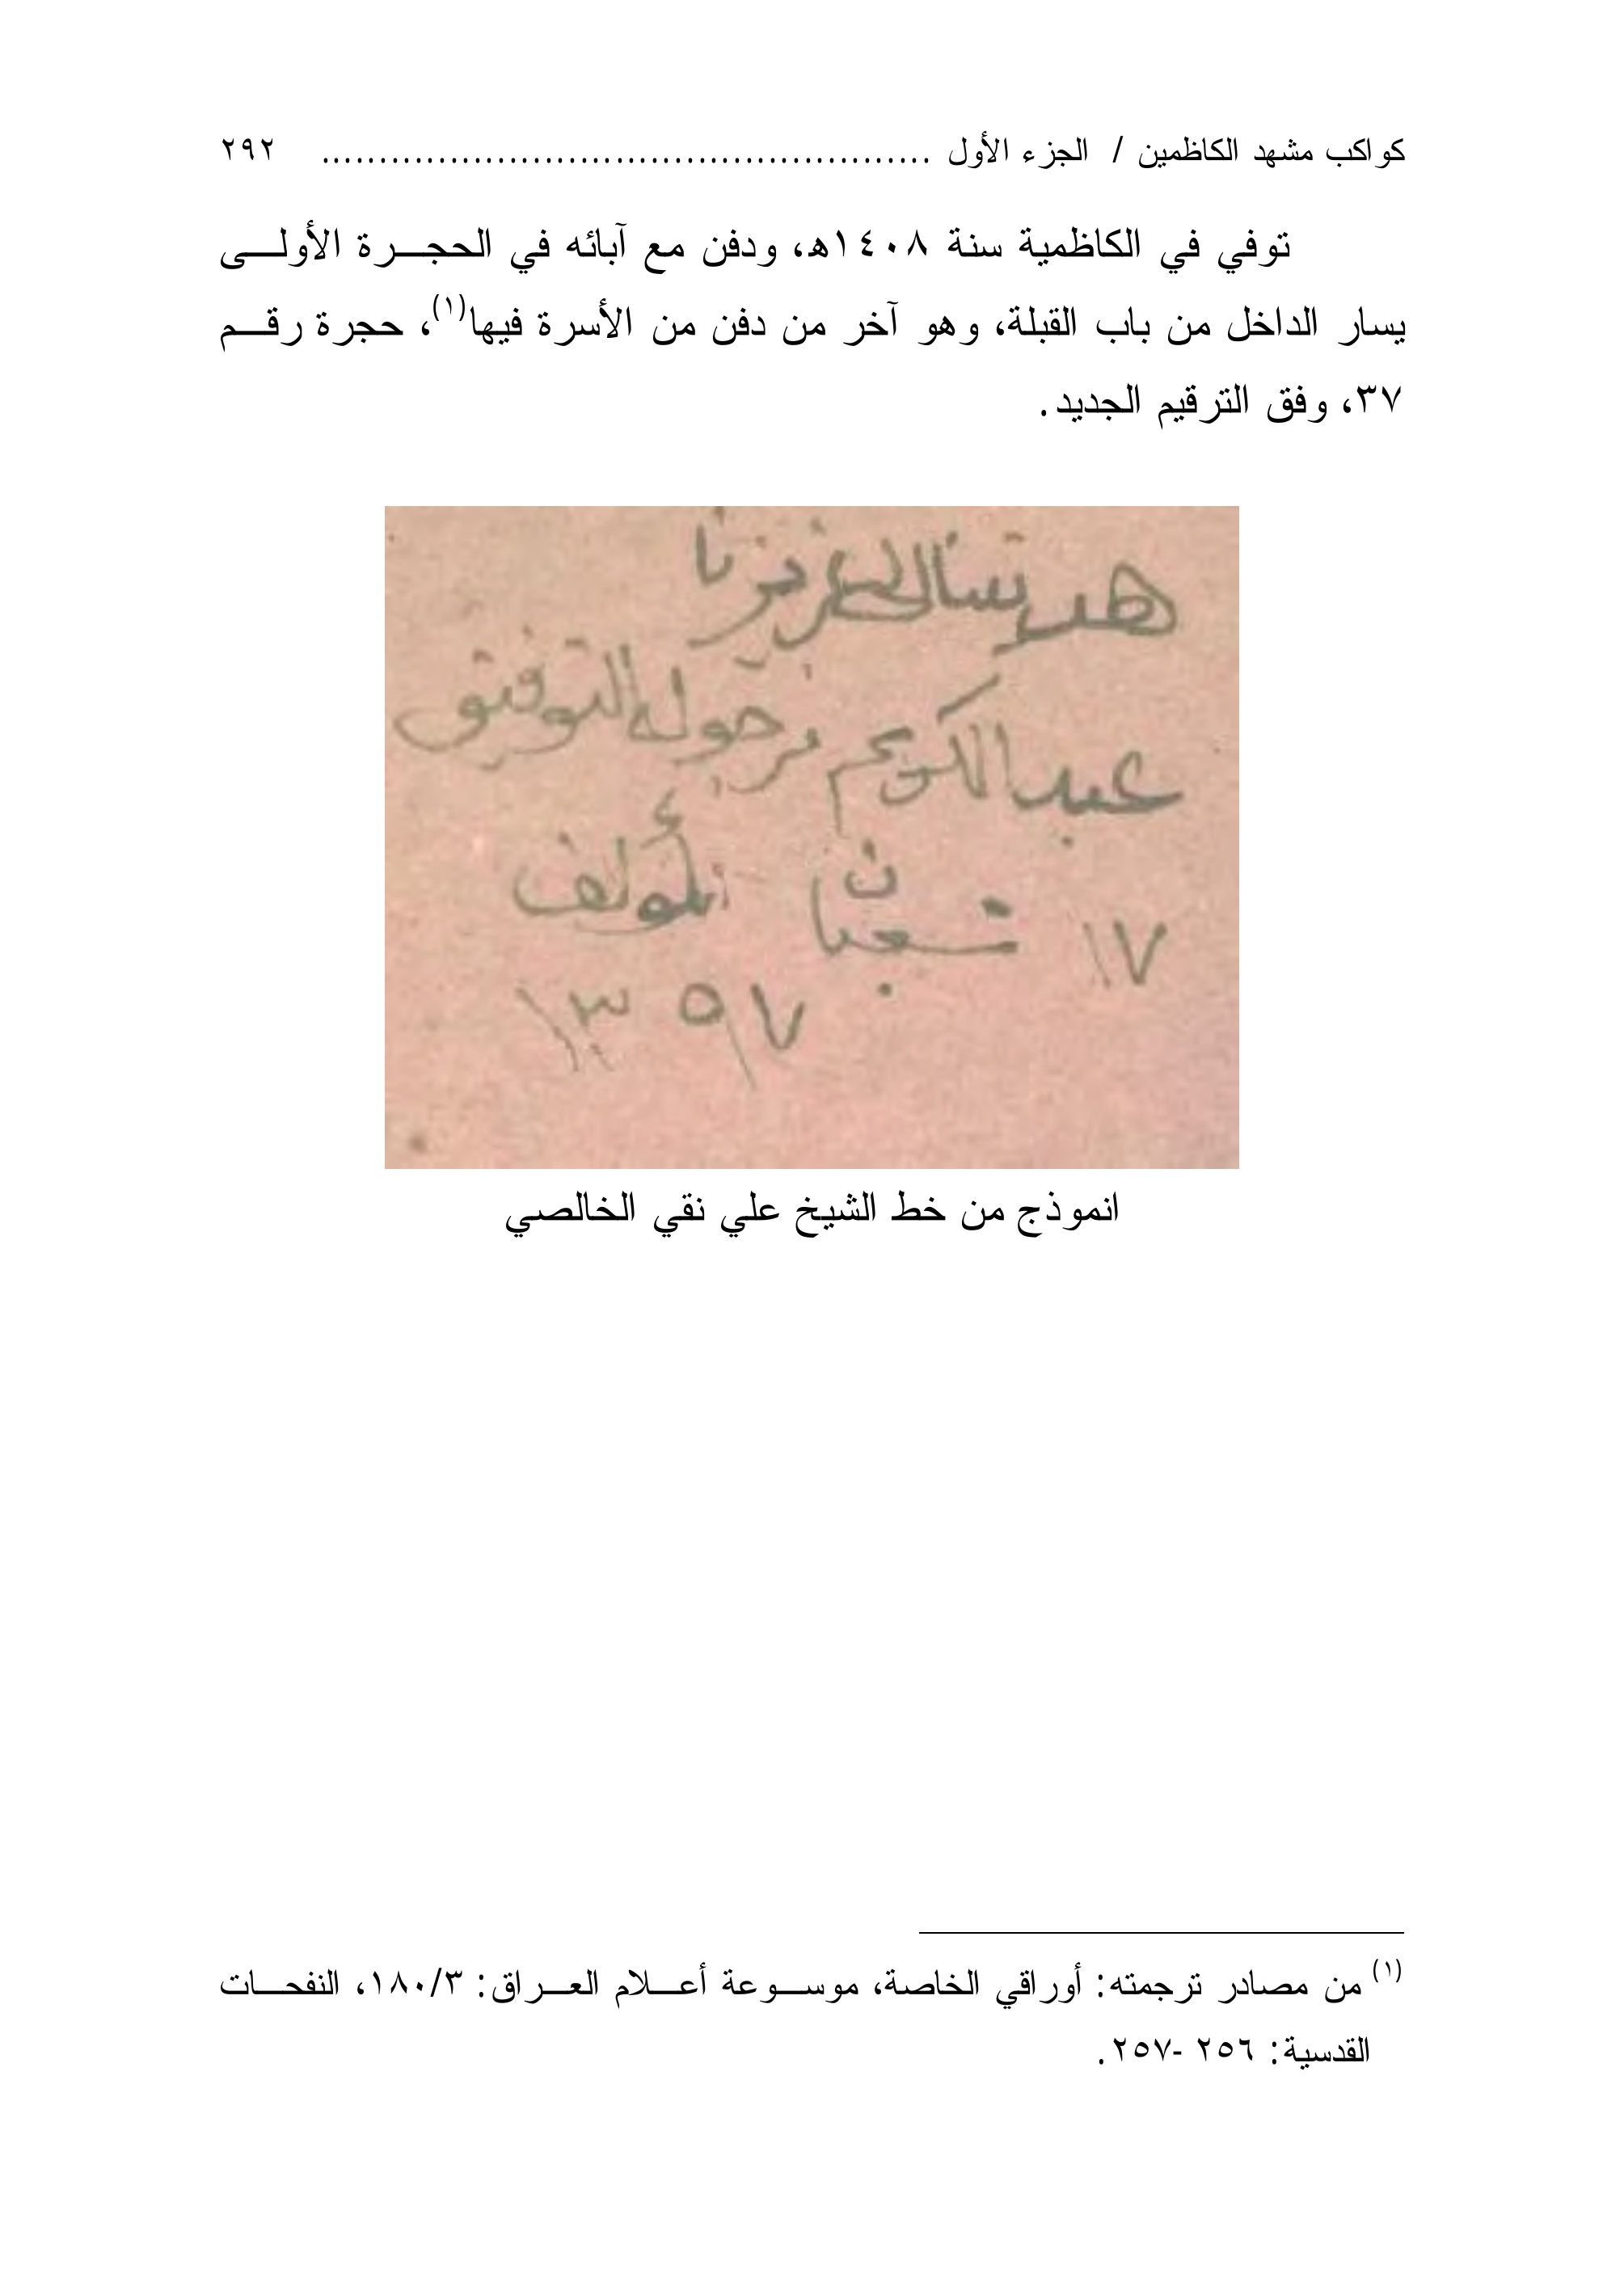 كواكب مشهد الكاظمين / الجزء الأول .................................................... ٢٩٢
توفي في الكاظمية سنة ١٤٠٨ه، ودفن مع آبائه في الحجرة الأولى
يسار الداخل من باب القبلة، وهو آخر من دفن من الأسرة فيها(١)، حجرة رقم
٣٧، وفق الترقيم الجديد.
هديتنا لعزيزنا
عبد الكريم نرجو له التوفيق
١٧ شعبان المؤلف
١٣٩٧
انموذج من خط الشيخ علي نقي الخالصي
(١) من مصادر ترجمته: أوراقي الخاصة، موسوعة أعلام العراق: ١٨٠/٣، النفحات
القدسية: ٢٥٦ -٢٥٧.